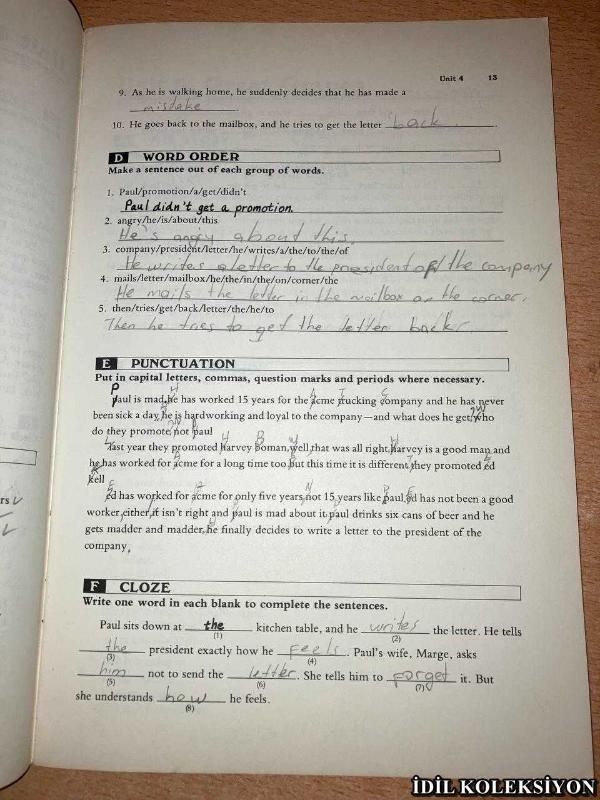 Unit 4 13
9. As he is walking home, he suddenly decides that he has made a
mistake
10. He goes back to the mailbox, and he tries to get the letter back.
D WORD ORDER
Make a sentence out of each group of words.
1. Paul/promotion/a/get/didn't
Paul didn't get a promotion.
2. angry/he/is/about/this
He's angry about this.
3. company/president/letter/he/writes/a/the/to/the/of
He writes a letter to the president of the company
4. mails/letter/mailbox/he/the/in/the/on/corner/the
He mails the letter in the mailbox on the corner.
5. then/tries/get/back/letter/the/he/to
Then he tries to get the letter back
E PUNCTUATION
Put in capital letters, commas, question marks and periods where necessary.
Paul is mad. He has worked 15 years for the Acme Trucking Company and he has never
been sick a day, he is hardworking and loyal to the company—and what does he get? Who
do they promote, not Paul
Last year they promoted Harvey Boman, well that was all right, Harvey is a good man and
he has worked for Acme for a long time too, but this time it is different, they promoted ed
kell
Ed has worked for Acme for only five years, not 15 years like Paul, Ed has not been a good
worker, either, it isn't right and Paul is mad about it, paul drinks six cans of beer and he
gets madder and madder, He finally decides to write a letter to the president of the
company.
F CLOZE
Write one word in each blank to complete the sentences.
Paul sits down at the kitchen table, and he writes the letter. He tells
(1) (2)
the president exactly how he feels. Paul's wife, Marge, asks
(3) (4)
him not to send the letter. She tells him to forget it. But
(5) (6) (7)
she understands how he feels.
(8)
rs
İDİL KOLEKSİYON